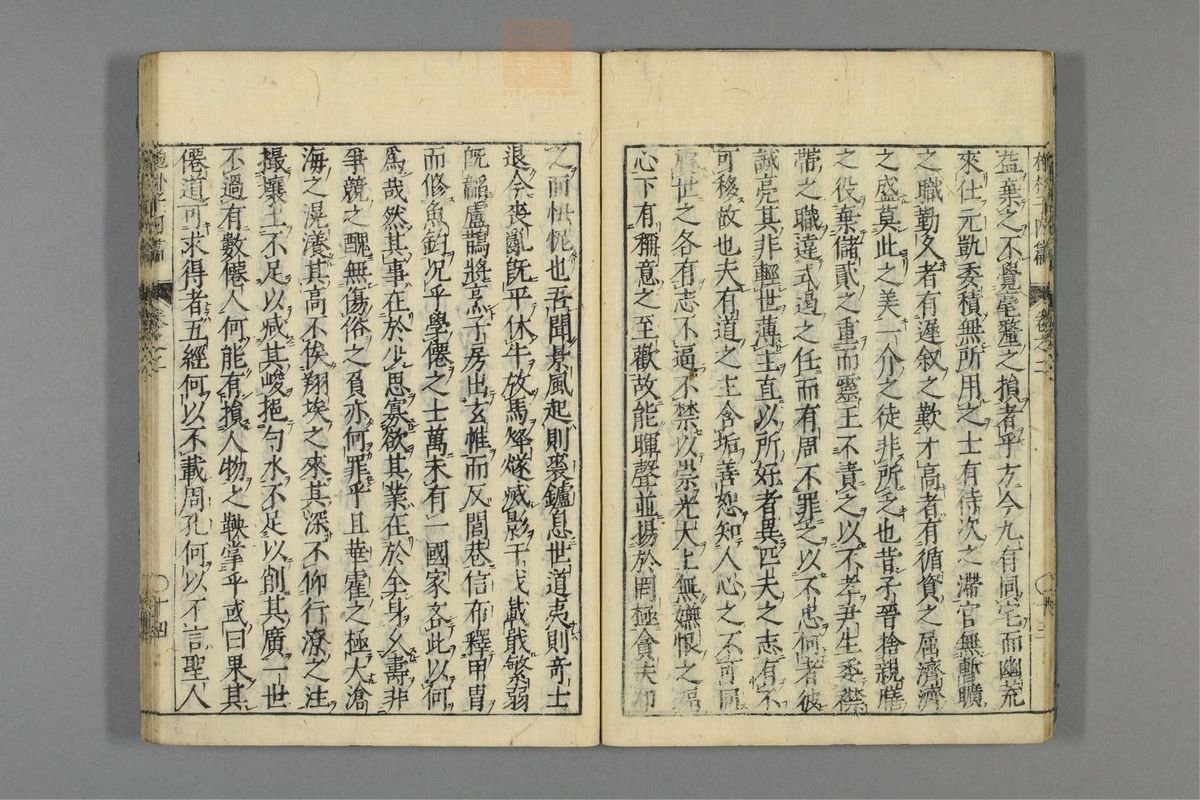 益棄之不覺毫釐之損者乎方今九有同宅而幽荒
來仕元凱委積無所用之士有待次之滯官無暫曠
之職勤久者有遲叙之歎才高者有循資之屈濟濟
之盛莫此之美一介之徒非所乏也昔子晉捨視膳
之役棄儲貳之重而靈王不責之以不孝尹生委襟
帶之職違式遏之任而有周不罪之以不忠何者彼
誠亮其非輕世薄主直以所好者異匹夫之志有不
可移故也夫有道之主含垢善恕知人心之不可同
出世之各有志不逼不禁以崇光大上無嫌恨之
心下有稱意之至歡故能暉聲並揚於罔極貪夫
之而忸怩也吾聞景風起則裘鑪息世道夷則奇士
退今喪亂既平休牛放馬烽燧滅影干戈載戢繁弱
既韜盧鵲將烹子房出玄帷而反閭巷信布釋甲胄
而修魚釣况乎學僊之士萬未有一國家吝此以何
爲哉然其事在於少思寡欲其業在於全身久壽非
爭競之醜無傷俗之負亦何罪乎且華霍之極大滄
海之滉瀁其高不俟翔埃之來其深不仰行潦之注
撮壤土不足以減其峻挹勺水不足以創其廣一世
不過有數僊人何能有損人物之鞅掌乎或曰果其
僊道可求得者五經何以不載周孔何以不言聖人